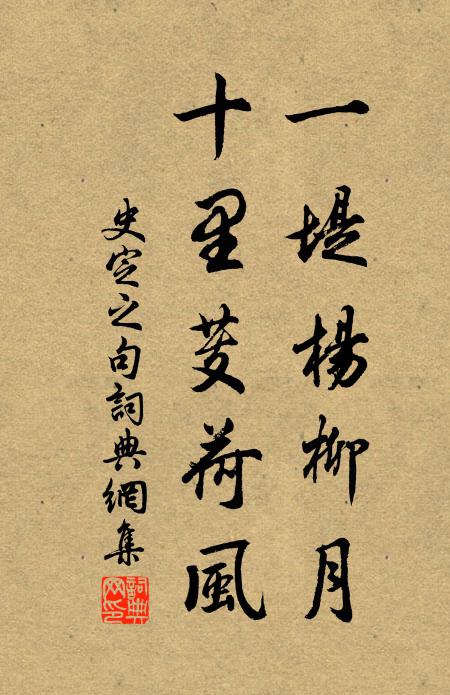 一堤楊柳月
十里芰荷風
史定之句詞典網集
詞典網印